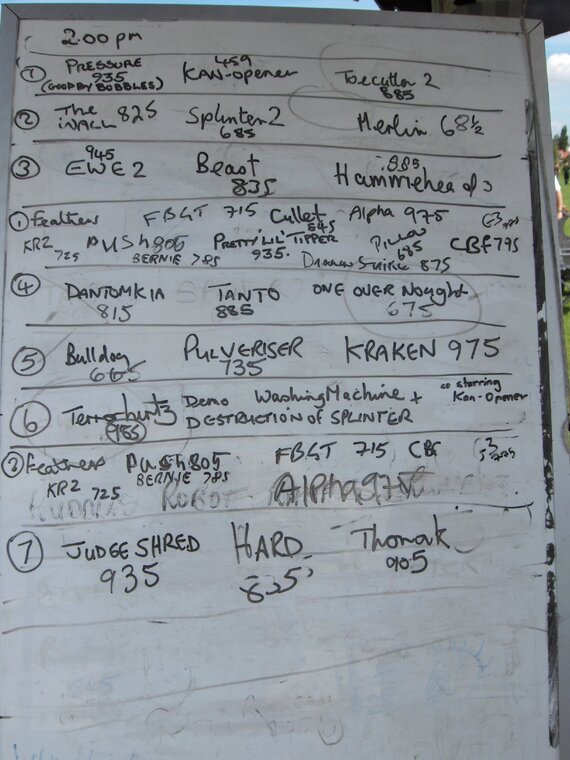 2.00 pm
① PRESSURE 935 (GOODBY BUBBLES) KAN-opener 459 Toecutter 2 885
② The WALL 825 Splinter 2 685 Merlin 68½
③ EWE 2 945 Beast 835 Hammerhead 3 885
① Feathers FBGT 715 Cullet 545 Alpha 975
KR2 725 PUSh 805 BERNIE 785 PRETTY LIL' TIPPER 935. Pillow 685 CBF 775
875
④ DANTOMKIA 815 TANTO 885 ONE OVER Nought 675
⑤ Bulldog 665 PULVERISER 735 KRAKEN 975
⑥ Terrorhurtz 955 Demo Washing Machine + co starring Kan-Opener
DESTRUCTION OF SPLINTER
② Feathers PUSh 805 FBGT 715 CBF
KR2 725 BERNIE 785 Alpha 975
ROBOT
⑦ JUDGE SHRED 935 HARD 825 Thorak 905